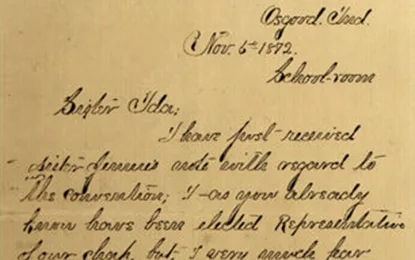 Osgood. Ind.
Nov. 6th 1872.
School-room
Sister Ida;
I have just received
sister Jennie's note with regard to
the convention; I - as you already
know have been elected Representative
of our chap, but, I very much fear